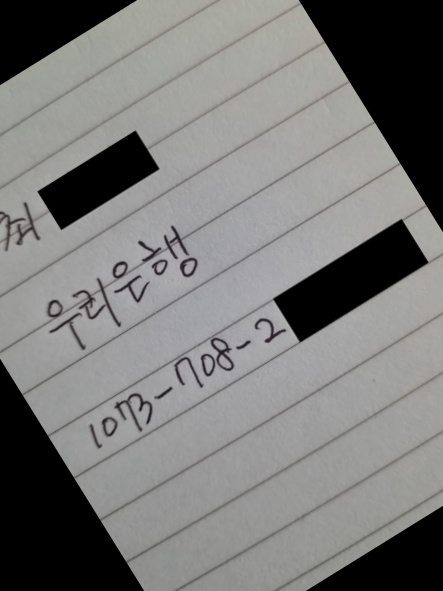 최
우리은행
1073-708-2